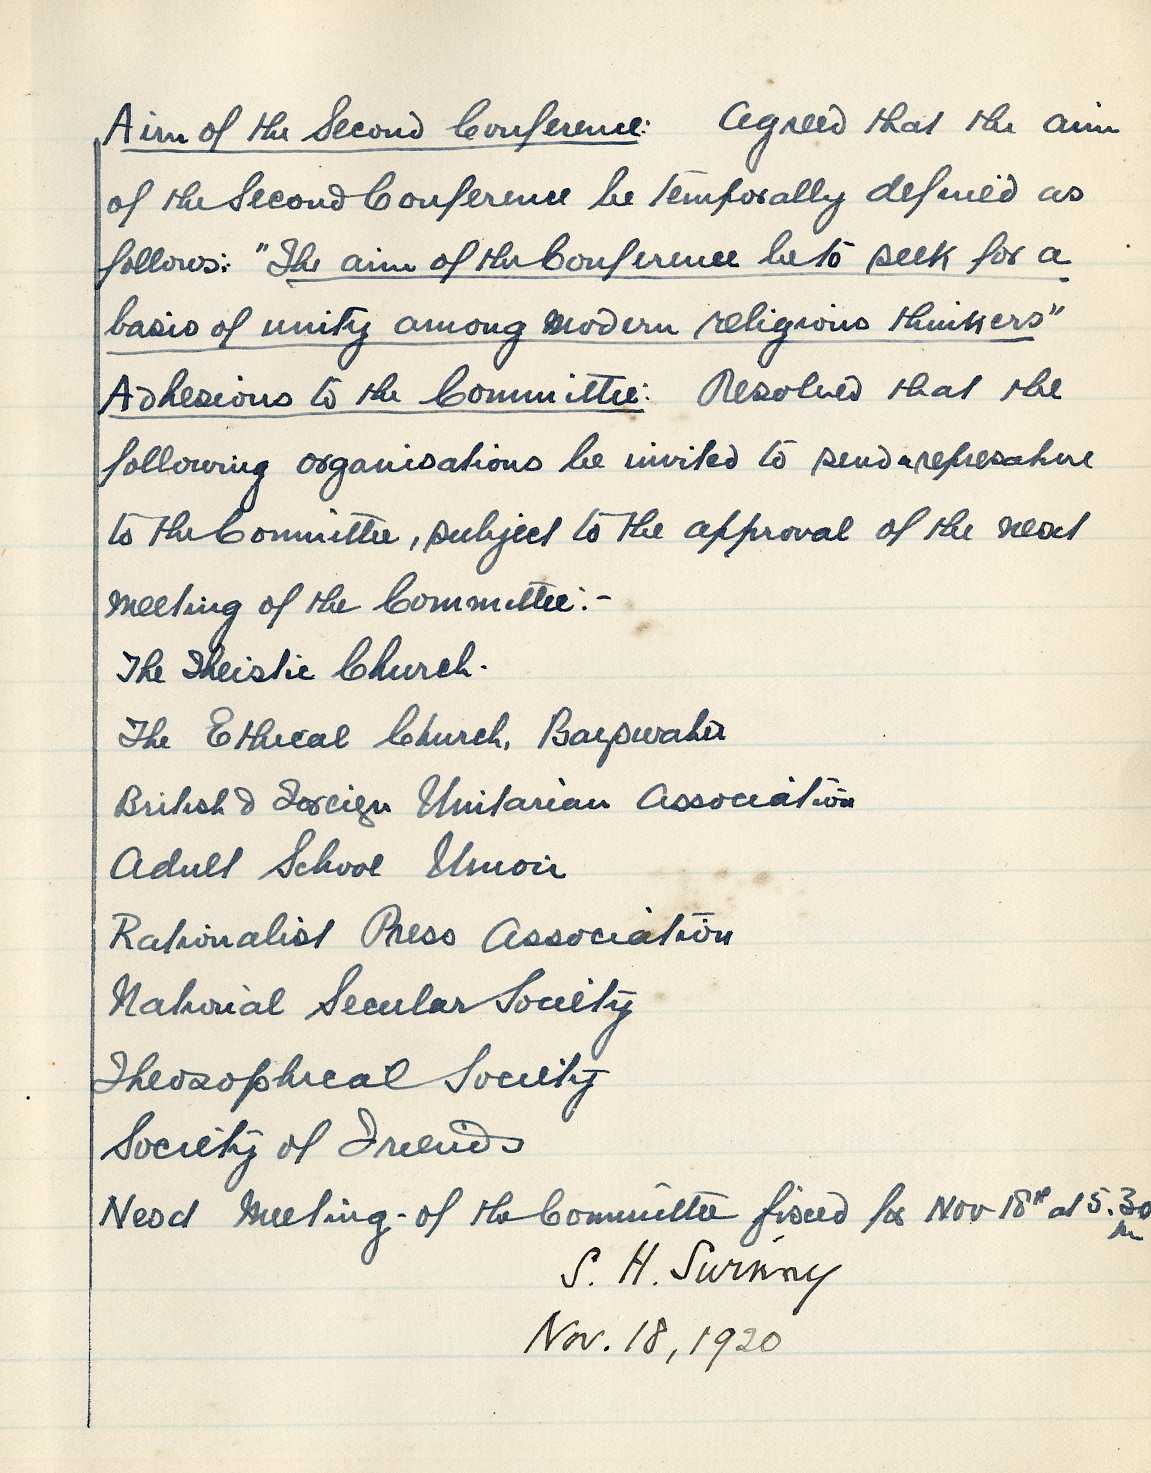 Aim of the Second Conference: Agreed that the aim
of the Second Conference be temporally defined as
follows: "The aim of the Conference be to seek for a
basis of unity among modern religious thinkers"
Adhesions to the Committee: Resolved that the
following organisations be invited to send a represative
to the Committee, subject to the approval of the next
meeting of the Committee:-
The Theistic Church.
The Ethical Church, Bayswater
British & Foreign Unitarian Association
Adult School Union
Rationalist Press Association
National Secular Society
Theosophical Society
Society of Friends
Next Meeting of the Committee fixed for Nov 18th at 5.30
S. H. Swinny
Nov. 18, 1920